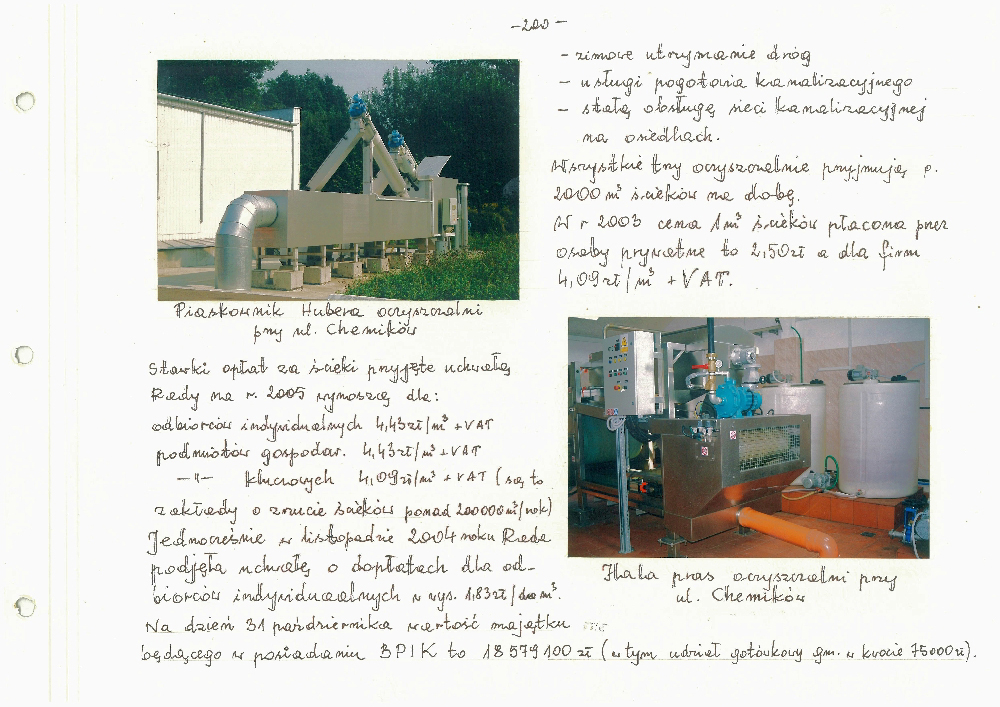 -200-
- zimowe utrzymanie dróg
- usługi pogotowia kanalizacyjnego
- stałą obsługę sieci kanalizacyjnej
na osiedlach.
Wszystkie trzy oczyszczalnie przyjmują p.
2000 m³ ścieków na dobę.
W r 2003 cena 1m³ ścieków płacona przez
osoby prywatne to 2,50zł a dla firm
4,09zł/m³ + VAT.
Piaskownik Hubera oczyszczalni
przy ul. Chemików
Stawki opłat za ścieki przyjęte uchwałą
Rady na r. 2005 wynoszą dla:
odbiorców indywidualnych 4,43zł/m³ + VAT
podmiotów gospodar. 4,43zł/m³ + VAT
-"- kluczowych 4,09zł/m³ + VAT (są to
zakłady o zrzucie ścieków ponad 200000m³/rok)
Jednocześnie w listopadzie 2004 roku Rada
podjęła uchwałę o dopłatach dla od-
biorców indywidualnych w wys. 1,83zł/m³.
Na dzień 31 października wartość majątku
będącego w posiadaniu BPIK to 18 579 100 zł (w tym udział gotówkowy gm. w kwocie 75000zł).
Hala pras oczyszczalni przy
ul. Chemików